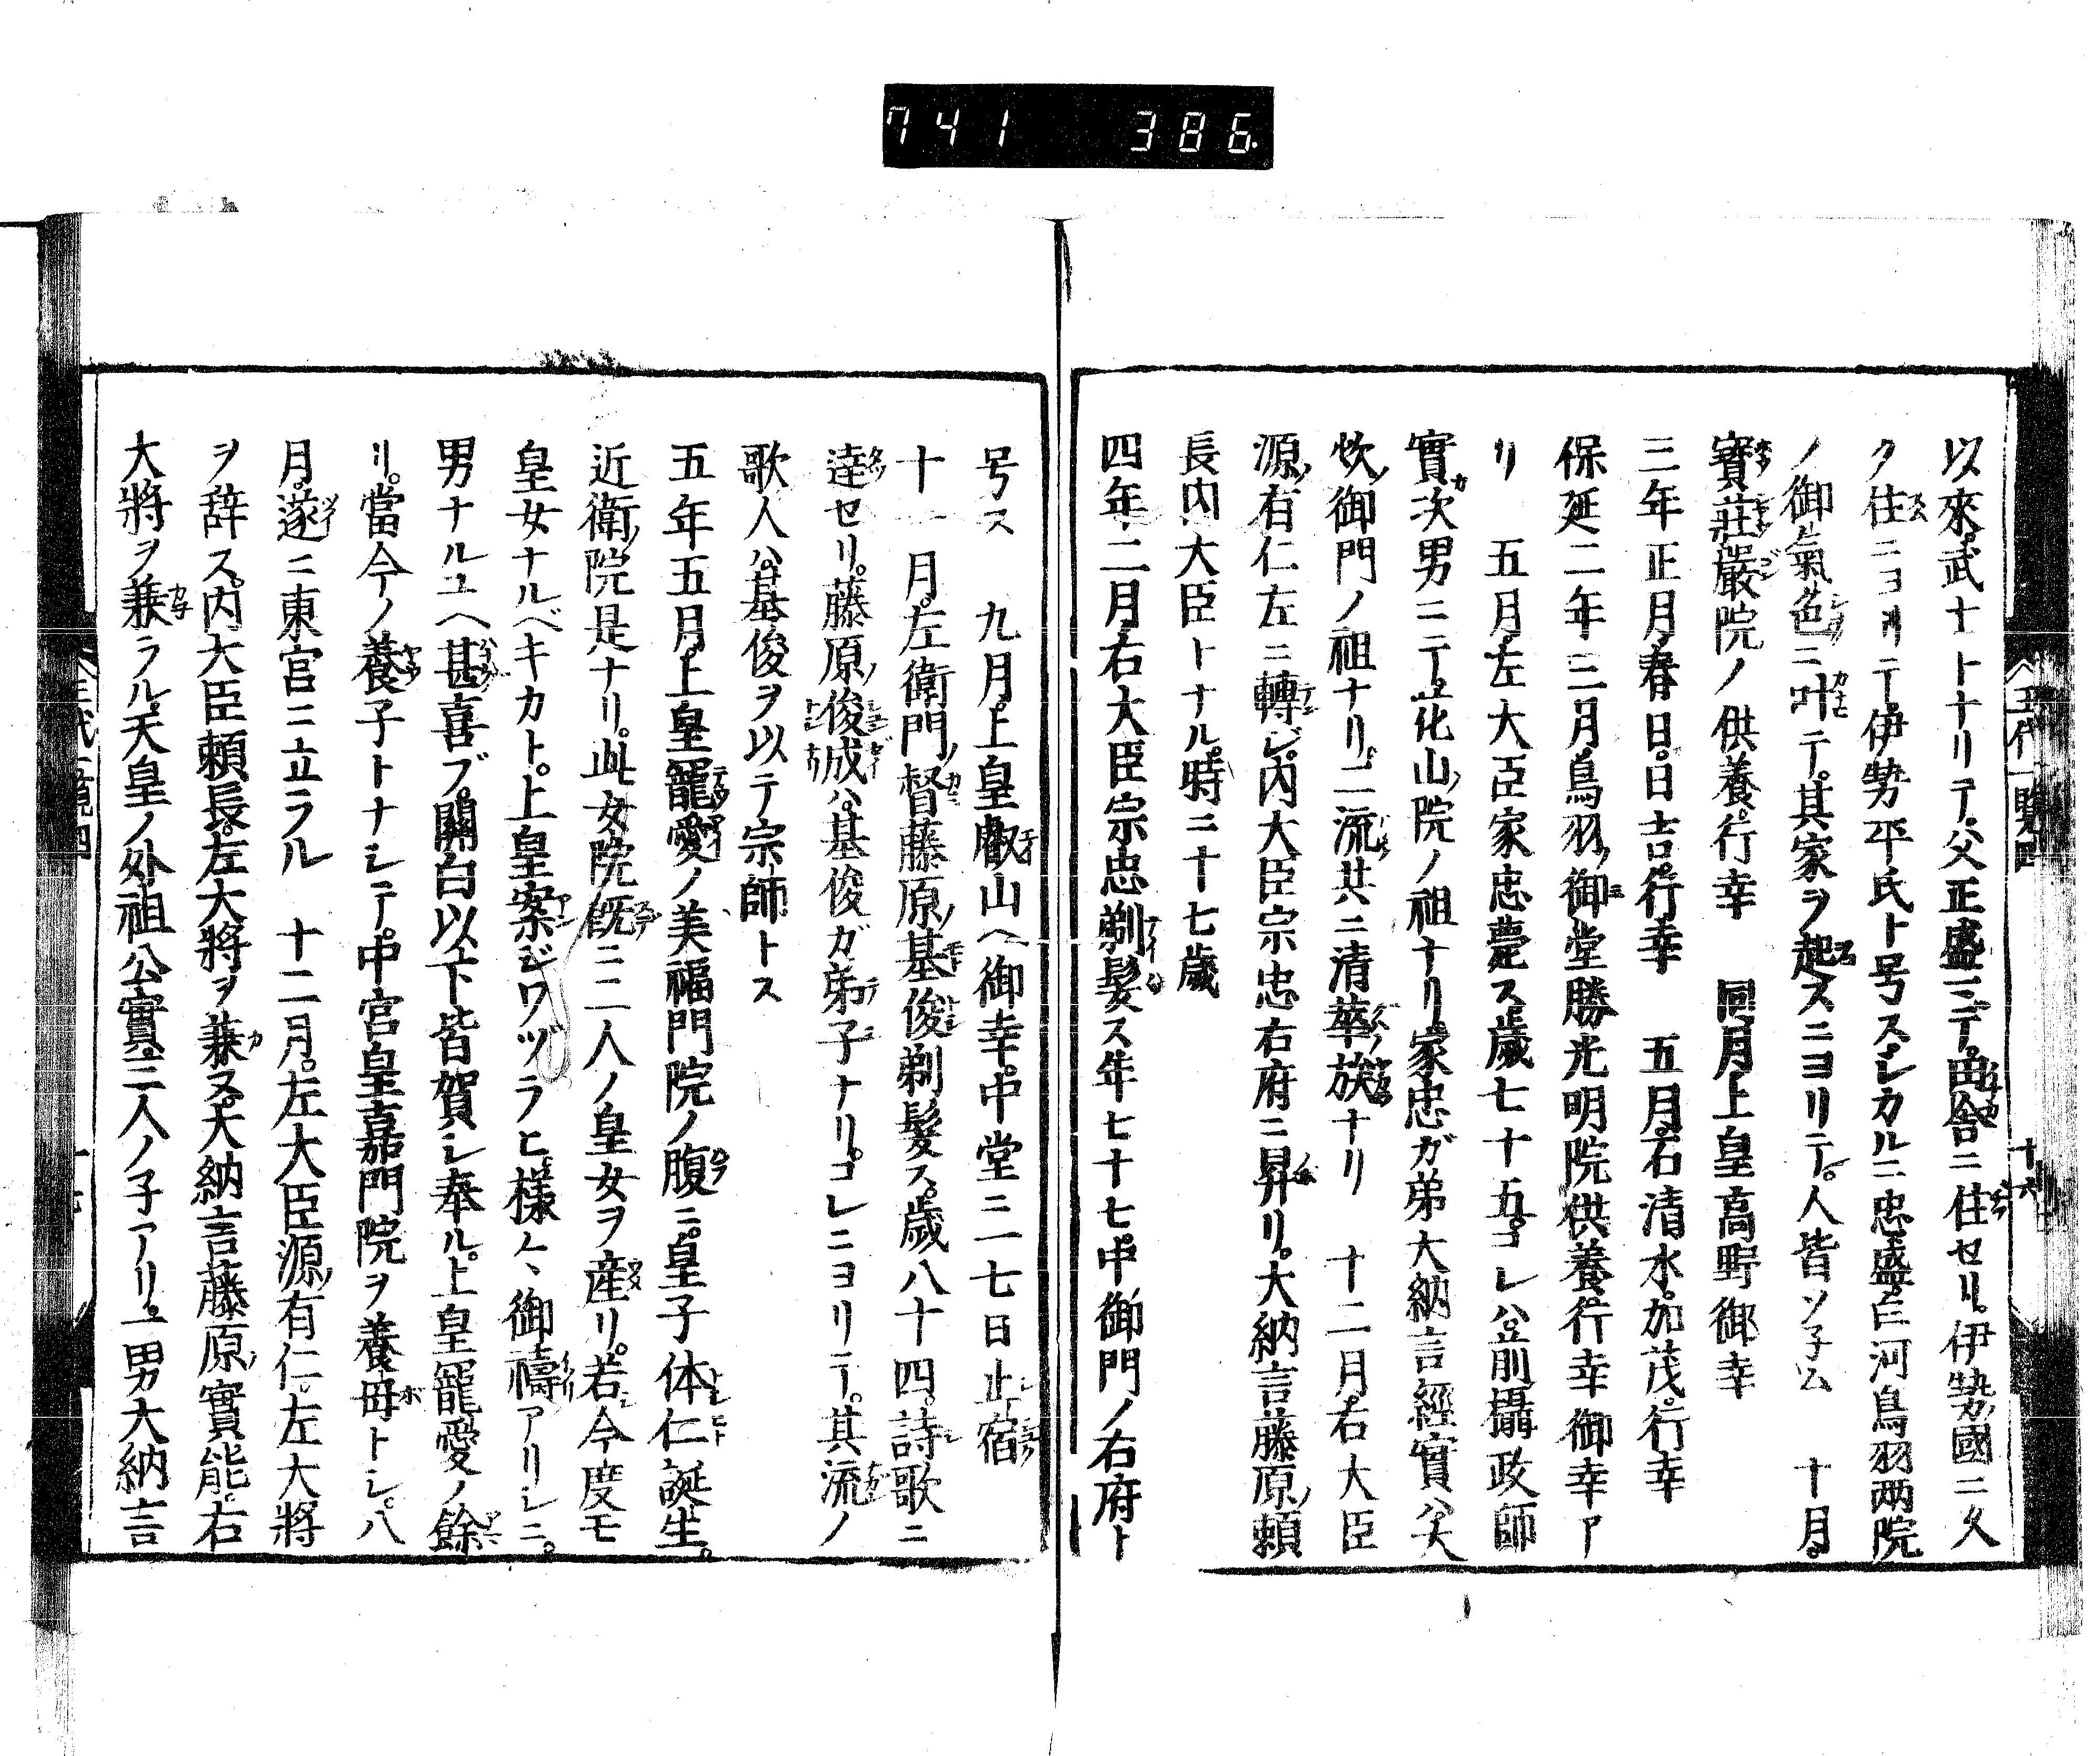 741 386
王代一覽四
十六
以來武士トナリテ。父正盛ニテ。田舎ニ住セリ。伊勢國ニ久
ク住ニヨリテ。伊勢平氏ト号ス。シカルニ忠盛。白河鳥羽两院
ノ御氣色ニ叶テ。其家ヲ起スニヨリテ。人皆ソ子ム 十月。
寶莊嚴院ノ供養。行幸 同月上皇高野御幸
三年正月。春日。日吉行幸 五月。石清水。加茂。行幸
保延二年三月。鳥羽ノ御堂勝光明院供養。行幸御幸ア
リ 五月。左大臣家忠薨ス。歲七十五。コレハ前攝政師
實次男ニテ。花山ノ院ノ祖ナリ。家忠ガ弟大納言經實ハ。大
炊ノ御門ノ祖ナリ。二流共ニ清華ノ族ナリ 十二月。右大臣
源ノ有仁左ニ轉ジ。内大臣宗忠右府ニ昇リ。大納言藤原ノ頼
長内大臣トナル。時ニ十七歲
四年二月。右大臣宗忠剃髮ス。年七十七。中御門ノ右府ト
号ス 九月。上皇叡山ヘ御幸。中堂ニ一七日止宿
十一月。左衛門ノ督藤原ノ基俊剃髮ス。歲八十四。詩歌ニ
達セリ。藤原ノ俊成ハ。基俊ガ弟子ナリ。コレニヨリテ。其流ノ
歌人ハ。基俊ヲ以テ宗師トス
五年五月。上皇寵愛ノ美福門院ノ腹ニ。皇子体仁誕生。
近衛ノ院是ナリ。此女院既ニ二人ノ皇女ヲ産リ。若今度モ
皇女ナルベキカト。上皇案ジワヅラヒ。樣々御禱アリシニ。
男ナルユヘ甚喜ブ。關白以下皆賀シ奉ル。上皇寵愛ノ餘
リ。當今ノ養子トナシテ。中宮皇嘉門院ヲ養母トシ。八
月。遂ニ東宮ニ立ラル 十二月。左大臣源ノ有仁。左大將
ヲ辞ス。内大臣頼長。左大將ヲ兼ス。大納言藤原ノ實能。右
大將ヲ兼ラル。天皇ノ外祖公實。三人ノ子アリ。一男大納言
王代一覽四